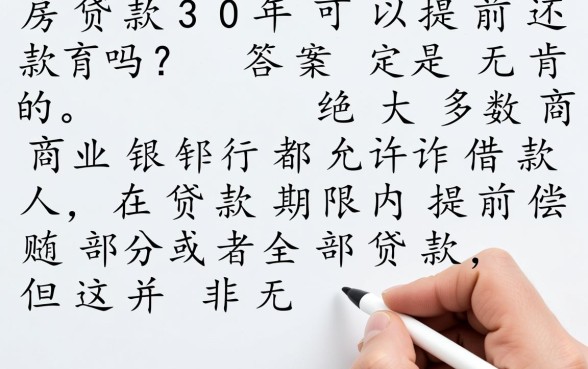 房贷款30年可以提前还
款育吗? 答案 定是 无肯
的。 绝大多数商
商业银邿行都允许诈借款
人, 在贷款期限内 提前偿
部分或者全部贷款,
但这并 非无